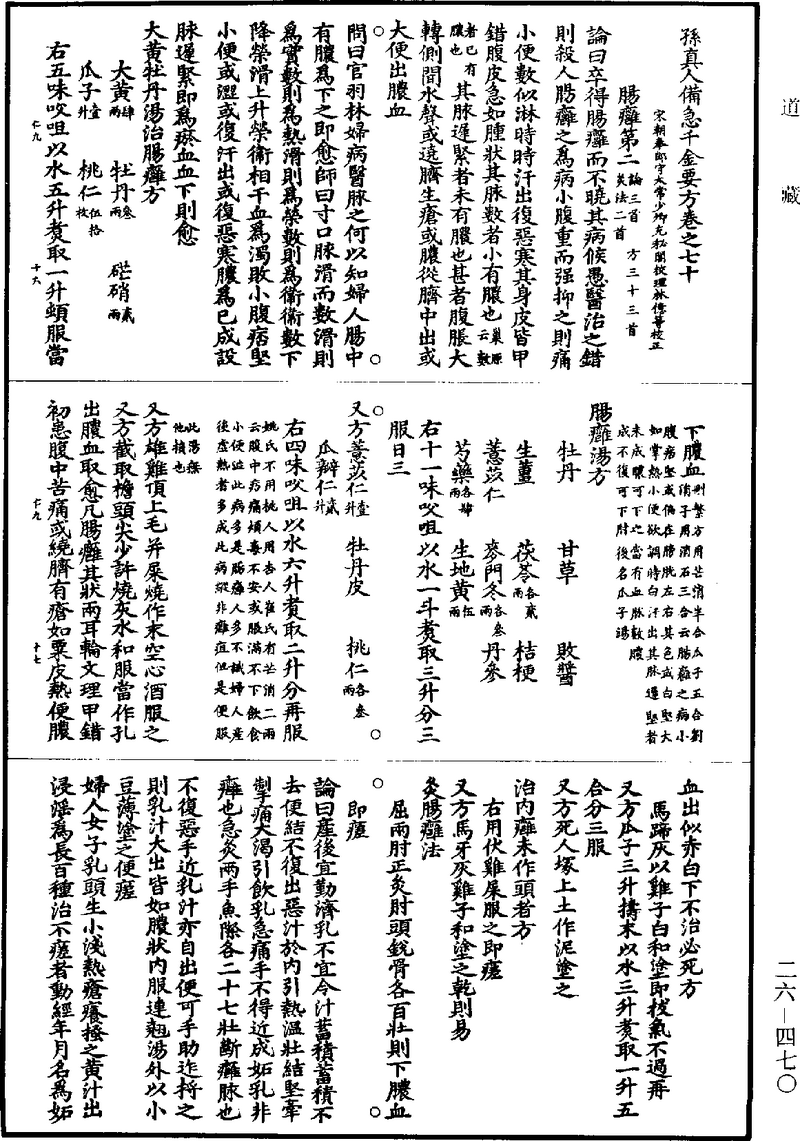 道藏
孫真人備急千金要方卷之七十
宋朝奉郎守太常少卿充秘閣校理林億等校正
腸癰第二論三首 方三十三首 灸法二首
論曰卒得腸癰而不曉其病候愚醫治之錯
則殺人腸癰之為病小腹重而强抑之則痛
小便數似淋時時汗出復惡寒其身皮皆甲
錯腹皮急如腫狀其脉數者小有膿也巢源云數
者已有膿也其脉遲緊者未有膿也甚者腹脹大
轉側聞水聲或遶臍生瘡或膿從臍中出或
大便出膿血
問曰官羽林婦病醫脉之何以知婦人腸中
有膿為下之即愈師曰寸口脉滑而數滑則
為實數則為熱滑則為榮數則為衛衛數下
降榮滑上升榮衛相干血為濁敗小腹痞堅
小便或澀或復汗出或復惡寒膿為已成設
脉遲緊即為瘀血血下則愈
大黃牡丹湯治腸癰方
大黃肆兩 牡丹叄兩 硭硝貳兩
瓜子壹升 桃仁伍拾枚
右五味㕮咀以水五升煮取一升頓服當
七九 十六
下膿血刪繁方用芒消半合瓜子五合劉涓子用消石三合云腸癰之病小
腹痞堅或偏在膀胱左右其色或白堅大如掌熱小便欲調時白汗出其脉遲堅者
未成膿可下之當有血脉數膿成不復可下肘後名瓜子湯
腸癰湯方
牡丹 甘草 敗醬
生薑 茯苓各貳兩 桔梗
薏苡仁 麥門冬各叄兩 丹參
芍藥各肆兩 生地黃伍兩
右十一味㕮咀以水一斗煮取三升分三
服日三
又方薏苡仁壹升 牡丹皮 桃仁各叄兩
瓜瓣仁貳升
右四味㕮咀以水六升煮取二升分再服
姚氏不用桃人用杏人崔氏有芒消二兩云腹中㽲痛煩毒不安或脹滿不下飲食
小便澁此病多是腸癰人多不識婦人産後虛熱者多成此病縱非癰疽但是便服
此湯無他損也
又方雄雞頂上毛并屎燒作末空心酒服之
又方截取檐頭尖少許燒灰水和服當作孔
出膿血取愈凡腸癰其狀兩耳輪文理甲錯
初患腹中苦痛或繞臍有瘡如粟皮熱便膿
七九 十七
血出似赤白下不治必死方
馬蹄灰以雞子白和塗即拔氣不過再
又方瓜子三升擣末以水三升煮取一升五
合分三服
又方死人塚上土作泥塗之
治內癰未作頭者方
右用伏雞屎服之即瘥
又方馬牙灰雞子和塗之乾則易
灸腸癰法
屈兩肘正灸肘頭銳骨各百壯則下膿血
即瘥
論曰産後宜勤濟乳不宜令汁蓄積蓄積不
去便結不復出惡汁於內引熱溫壯結堅牽
掣痛大渴引飲乳急痛手不得近成妬乳非
癰也急灸兩手魚際各二十七壯斷癰脉也
不復惡手近乳汁亦自出便可手助迮捋之
則乳汁大出皆如膿狀內服連翹湯外以小
豆薄塗之便瘥
婦人女子乳頭生小淺熱瘡癢搔之黃汁出
浸淫為長百種治不瘥者動經年月名為妬
二六—四七〇